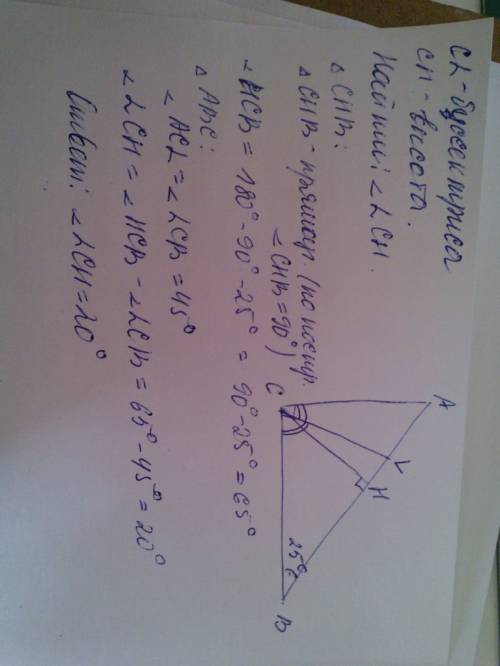 CL - биссектриса
CH - высота.
Найти: ∠LCH.
△CHB:
△CHB - прямоуг. (по постр.
∠CHB = 90°)
∠HCB = 180° - 90° - 25° = 90° - 25° = 65°
△ABC:
∠ACL = ∠LCB = 45°
∠LCH = ∠HCB - ∠LCB = 65° - 45° = 20°
Ответ: ∠LCH = 20°
A
L
H
C
25°
B